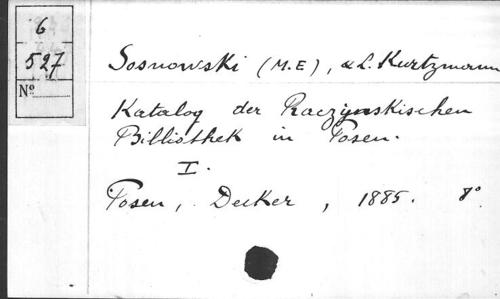 6
527
Nº
Sosnowski (M.E), & L. Kurtzmann
Katalog der Raczynskischen
Bibliothek in Posen.
I.
Posen, Decker, 1885. 8°